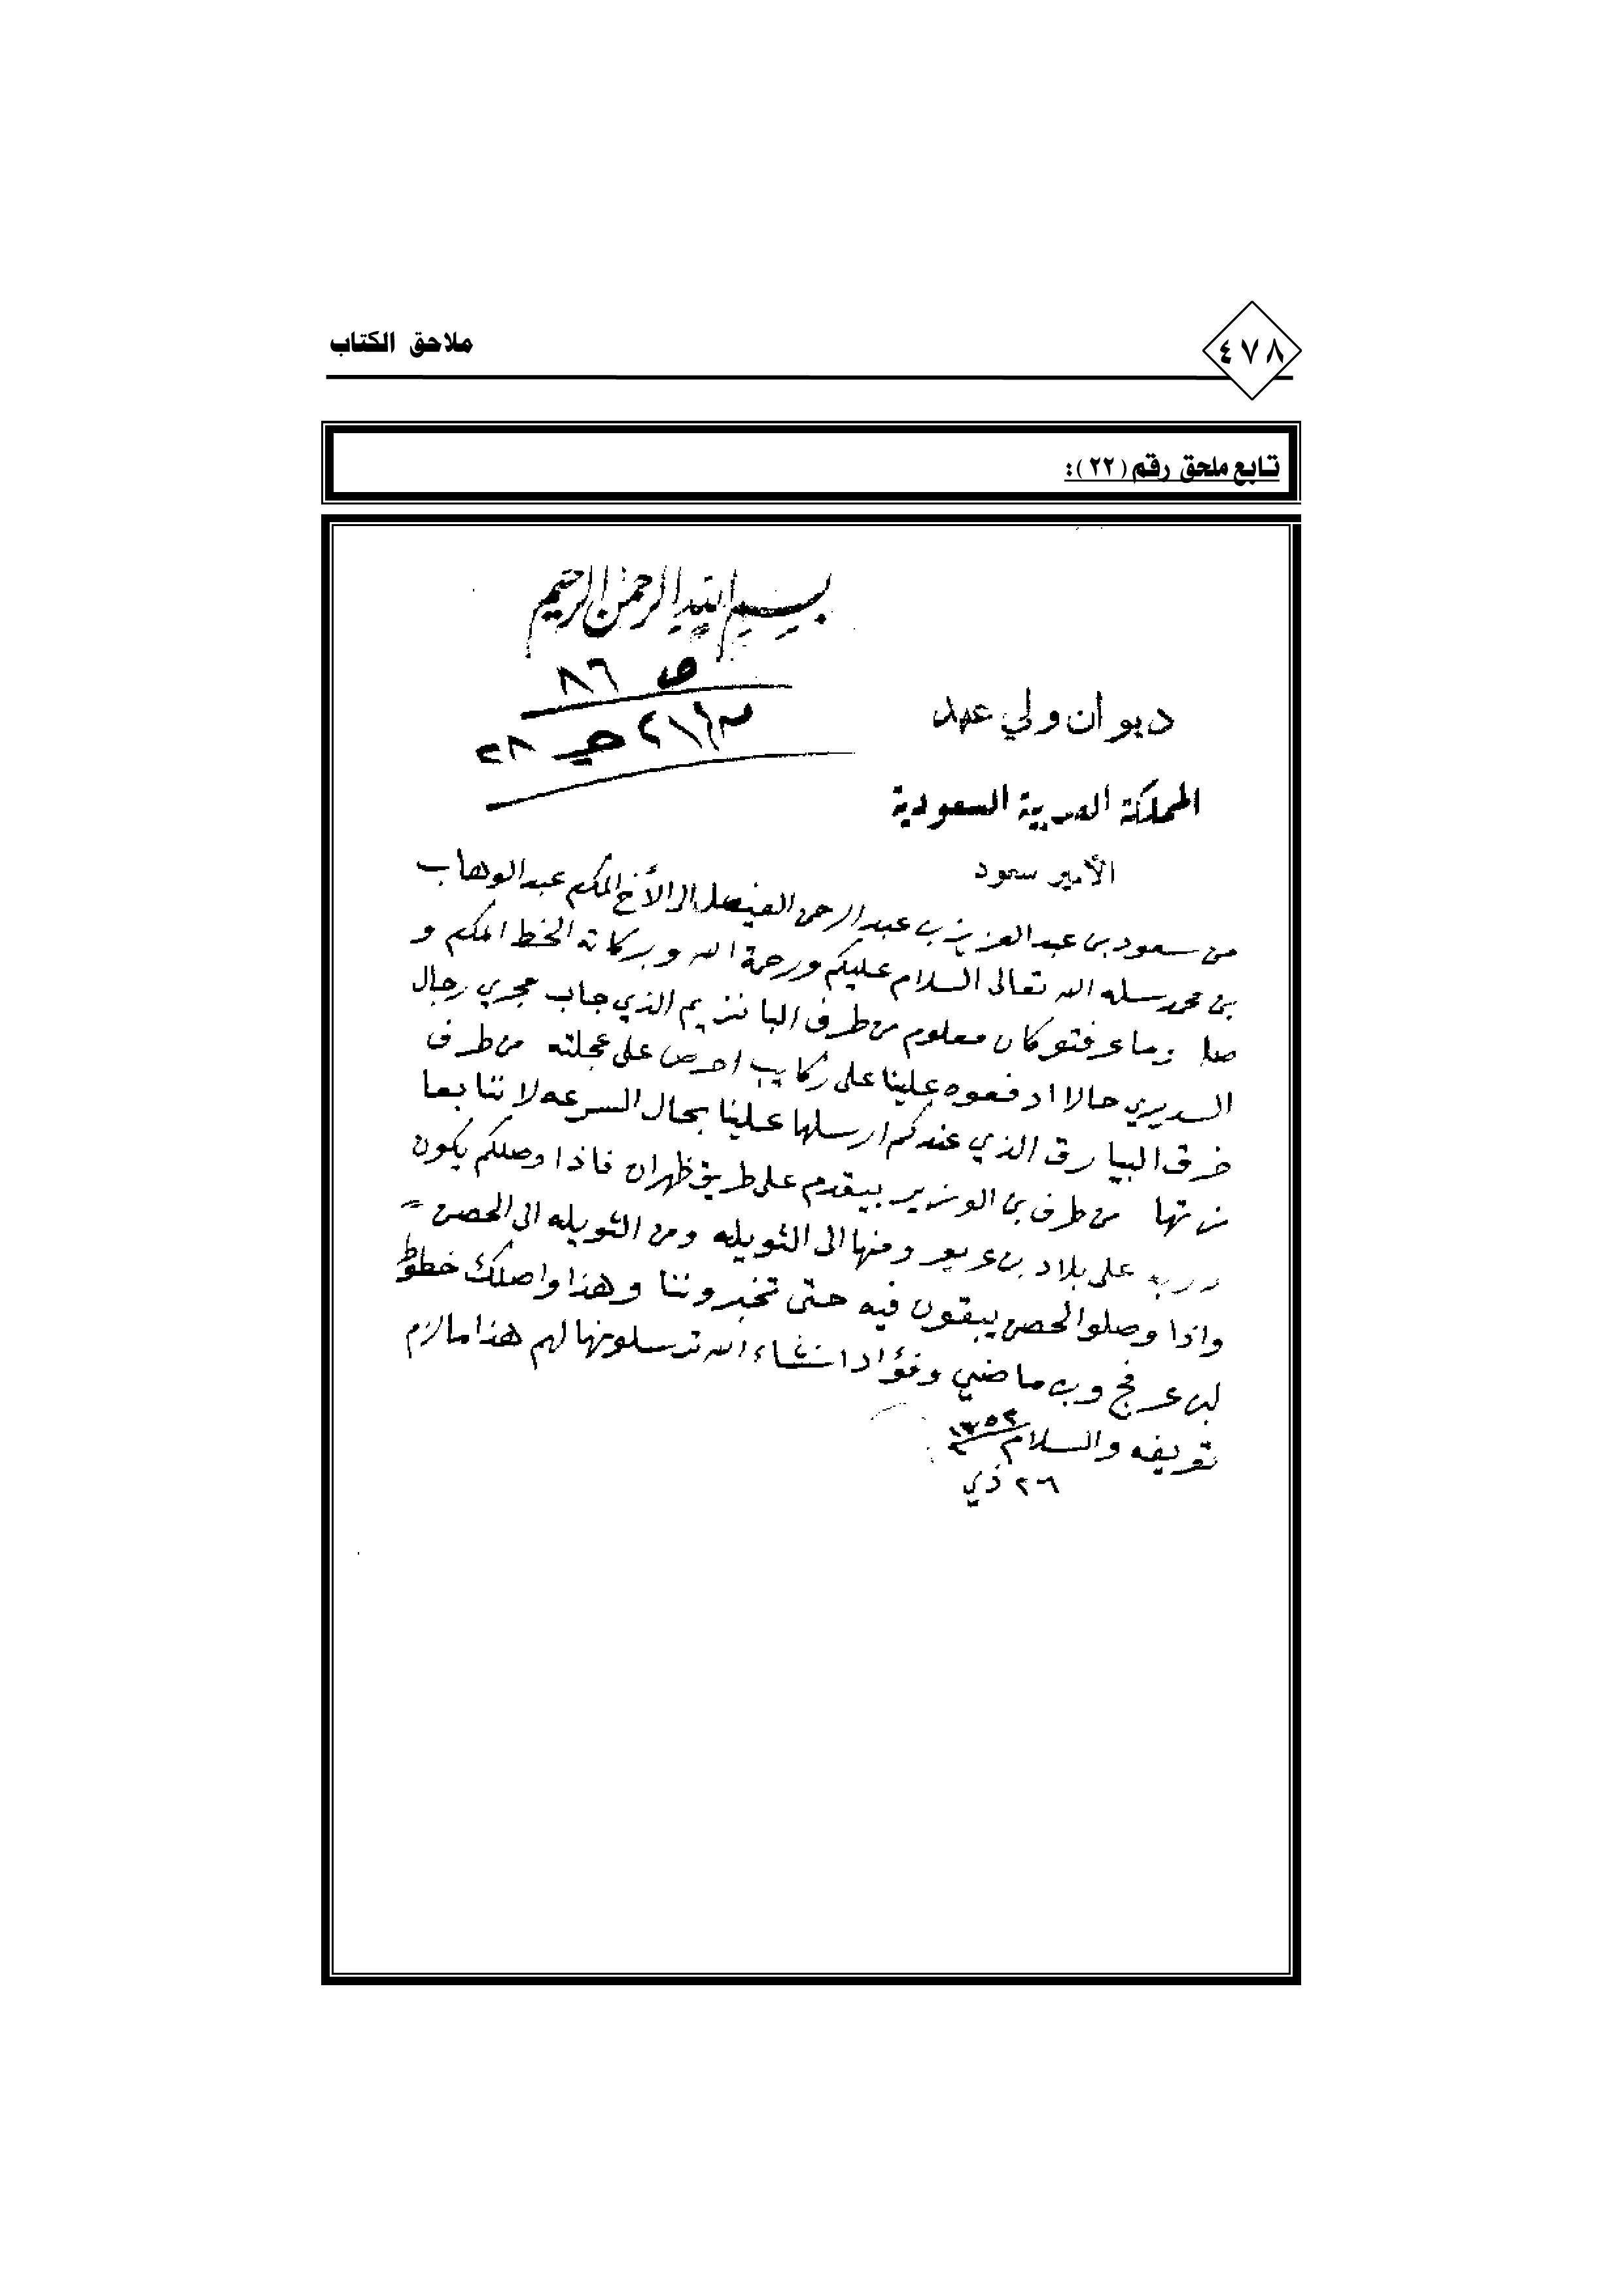 ٤٧٨
ملاحق الكتاب
تابع ملحق رقم (٢٢):
بسم الله الرحمن الرحيم
ص ٨٦
ديوان ولي عهد
المملكة العربية السعودية
الأمير سعود
من سعود بن عبد العزيز بن عبد الرحمن الفيصل الى الأخ المكرم عبد الوهاب
بن محمد سلمه الله تعالى السلام عليكم ورحمة الله وبركاته الخط المكرم و
صل وما عرفتو كان معلوم من طرف البانزيم الذي جاب مجري رجال
السديري حالا ادفعوه علينا على ركايب احرص على عجلته من طرف
خرق البيارق الذي عندكم ارسلها علينا بحال السرعه لاننا بعا
زتها من طرف بن الوزير بيقدم على طريق ظهران فاذا وصلكم يكون
دربه على بلاد بن عريعر ومنها الى الثويله ومن الثويله الى الحصن
واذا وصلوا الحصن يبقون فيه حتى تخبروننا وهذا واصلك خطوط
لبن عرفج وبن ماضي وفؤاد انشاء الله ترسلونها لهم هذا مالزم
تعريفه والسلام ١٣٥٢
٢٦ ذي